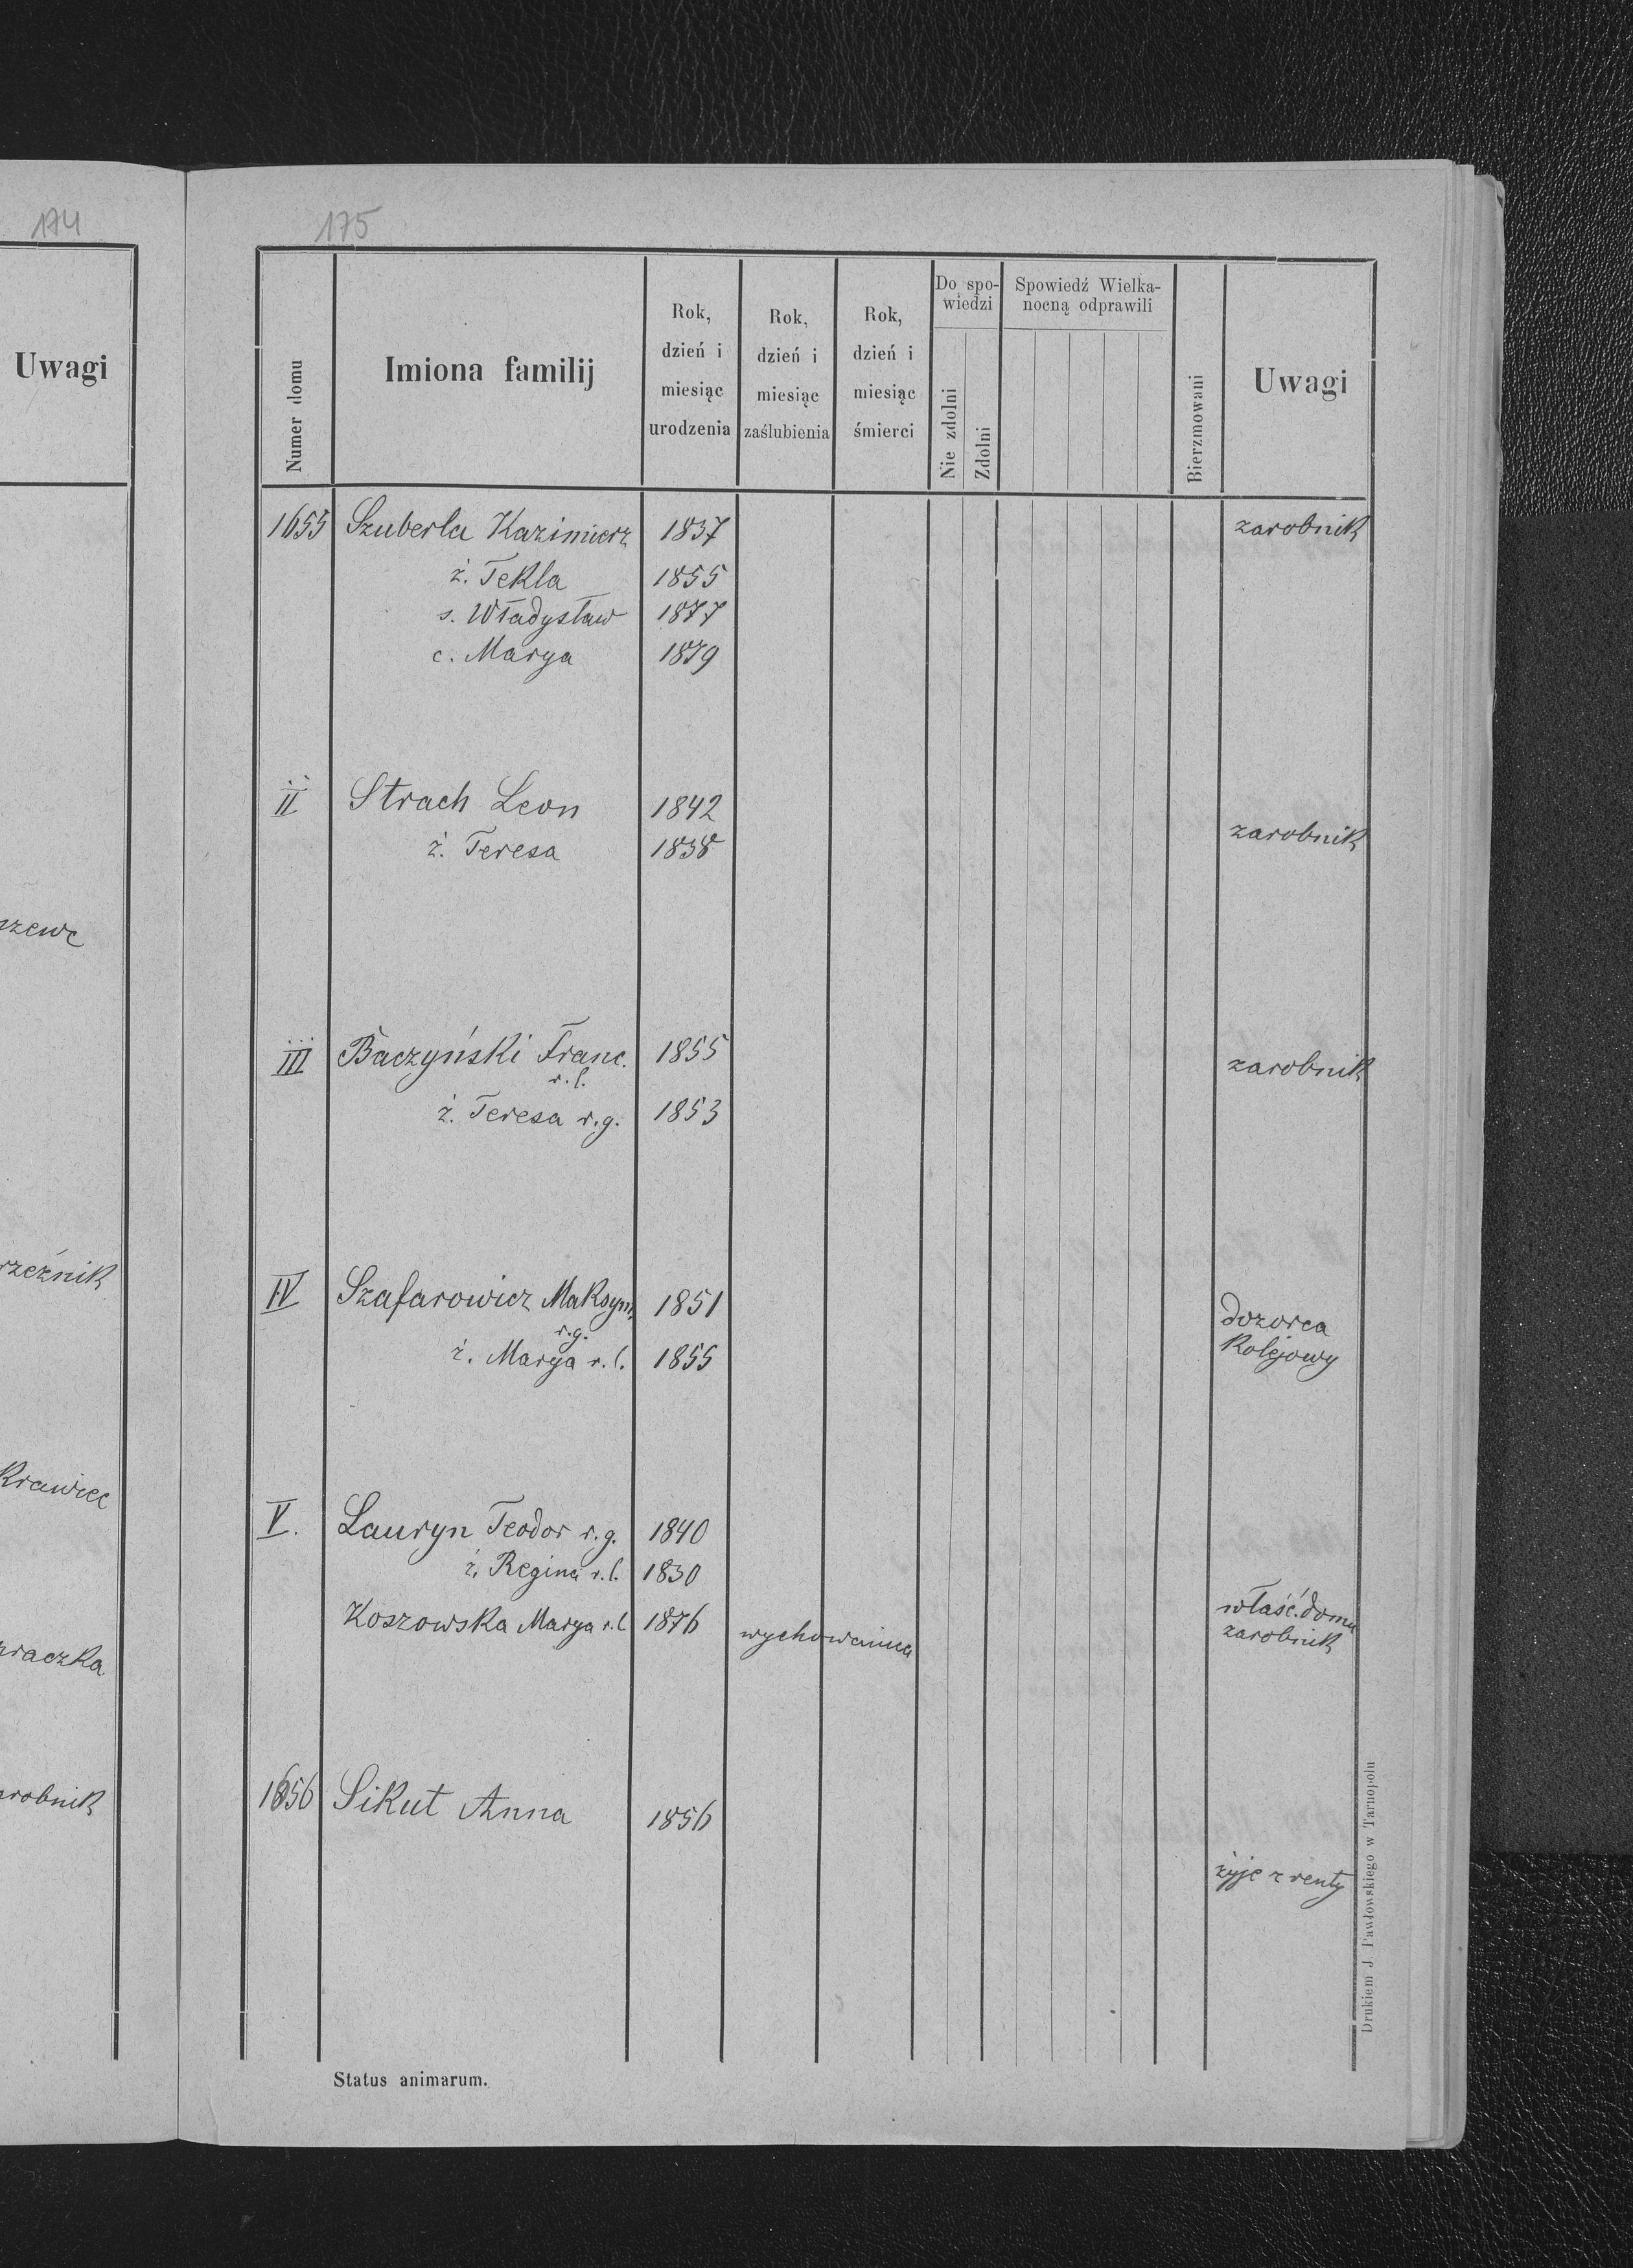 174
Uwagi
szewc
rzeźnik
Krawiec
praczka
zarobnik
175
Numer domu
Imiona familij
Rok,
dzień i
miesiąc
urodzenia
Rok,
dzień i
miesiąc
zaślubienia
Rok,
dzień i
miesiąc
śmierci
Do spo-
wiedzi
Nie zdolni
Zdolni
Spowiedź Wielka-
nocną odprawili
Bierzmowani
Uwagi
1655 Szuberla Kazimierz 1837 zarobnik
ż. Tekla 1855
s. Władysław 1877
c. Marya 1879
II Strach Leon 1842
ż. Teresa 1838 zarobnik
III Baczyński Franc. 1855 zarobnik
r.l.
ż. Teresa r.g. 1853
IV Szafarowicz Maksym, 1851 dozorca
r.g.
ż. Marya r.l. 1855 Kolejowy
V. Lauryn Teodor r.g. 1840
ż. Regina r.l. 1830
Koszowska Marya r.l 1876 wychowanica właść. domu
zarobnik
1656 Sikut Anna 1856
żyje z renty
Drukiem J Pawłowskiego w Tarnopolu
Status animarum.